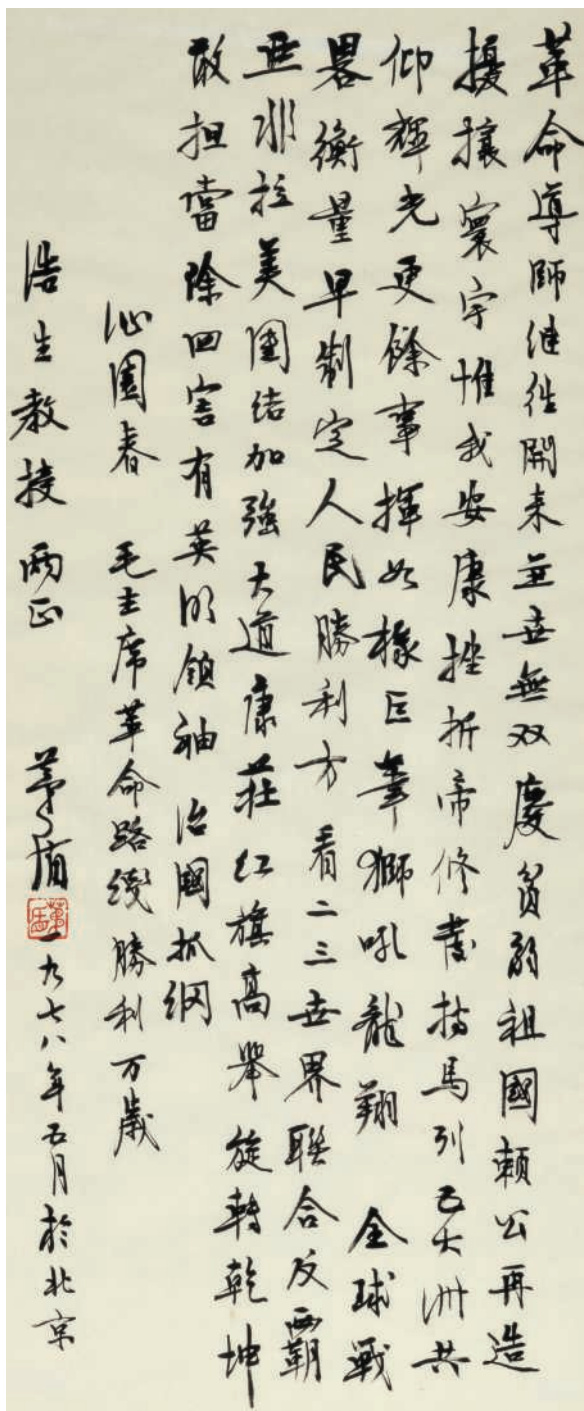 革命導師继往開来並世無双慶貧弱祖國賴公再造
擾攘寰宇惟我安康挫折帝修發揚馬列五大洲共
仰輝光更餘事揮如椽巨筆獅吼龍翔 全球戰
畧衡量早制定人民勝利方看二三世界聯合反兩霸
亚非拉美團结加強大道康莊红旗高舉旋轉乾坤
敢担當除四害有英明領袖治國抓纲
沁園春 毛主席革命路綫勝利万歲
浩生教授 両正 茅盾 一九七八年五月於北京
茅盾